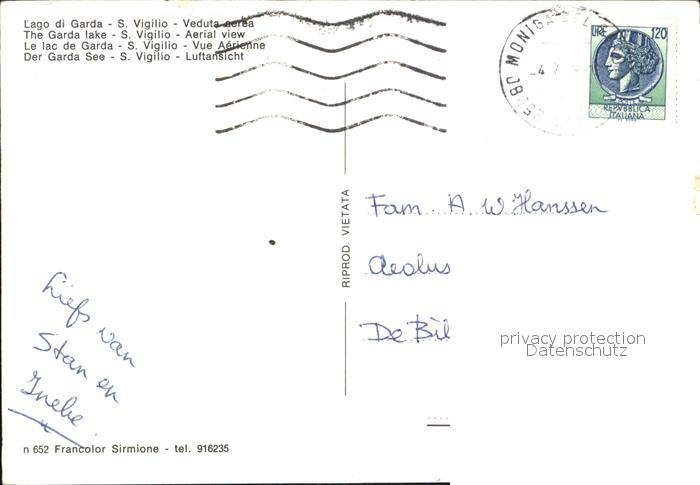 Lago di Garda - S. Vigilio - Veduta aerea
The Garda lake - S. Vigilio - Aerial view
Le lac de Garda - S. Vigilio - Vue Aérienne
Der Garda See - S. Vigilio - Luftansicht
25080 MONIGA DEL
4 7
LIRE Nº 120
REPVBBLICA
ITALIANA
RIPROD. VIETATA
Fam. A W Hanssen
Aeolus
De Bil
privacy protection
Datenschutz
Liefs van
Stan en
Ineke
n 652 Francolor Sirmione - tel. 916235